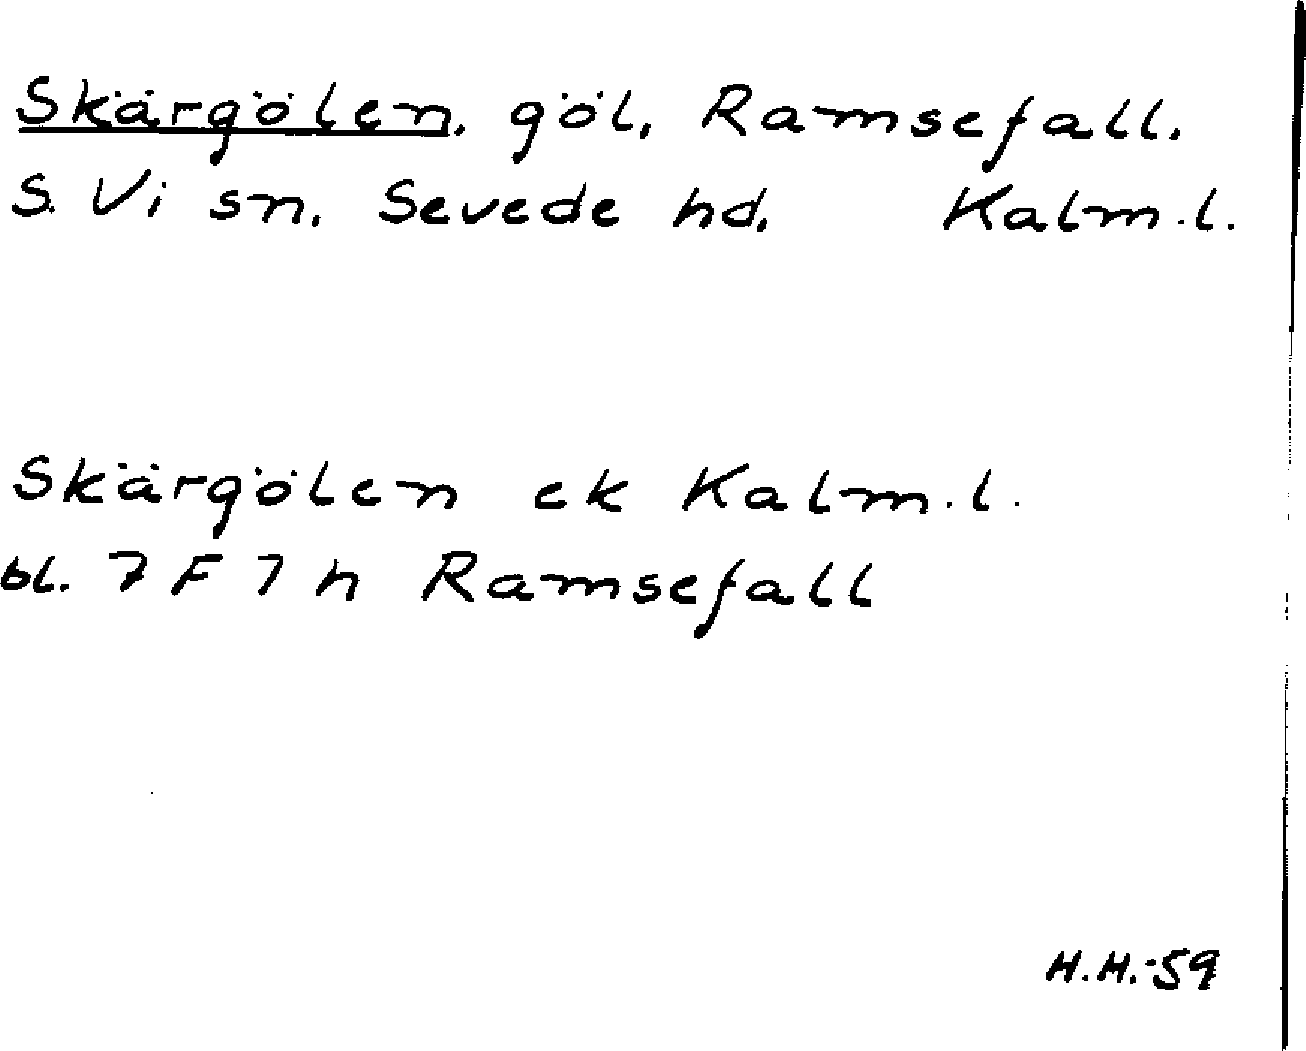 Skärgölen, göl, Ramsefall.
S. Vi sn. Sevede hd. Kalm.l.
Skärgölen ek Kalm.l.
bl. 7 F 7 h Ramsefall
H.H.-59